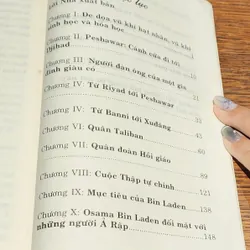 lời Nhà xuất bản.
Chương I: Đe dọa vũ khí hạt nhân, vũ khí
sinh học và hóa học
Chương II: Peshawar: Cánh cửa đi tới
Djihad
Chương III: Người đàn ông của một gia
đình giàu có
Chương IV: Từ Riyad tới Peshawar
Chương IV: Từ Banni tới Xuđăng
Chương VI: Quân Taliban
Chương VII: Quân đoàn Hồi giáo
89
Chương VIII: Cuộc Thập tự chinh
121
Chương IX: Mục tiêu của Bin Laden
138
Chương X: Osama Bin Laden đối mặt với
những người Ả Rập
148